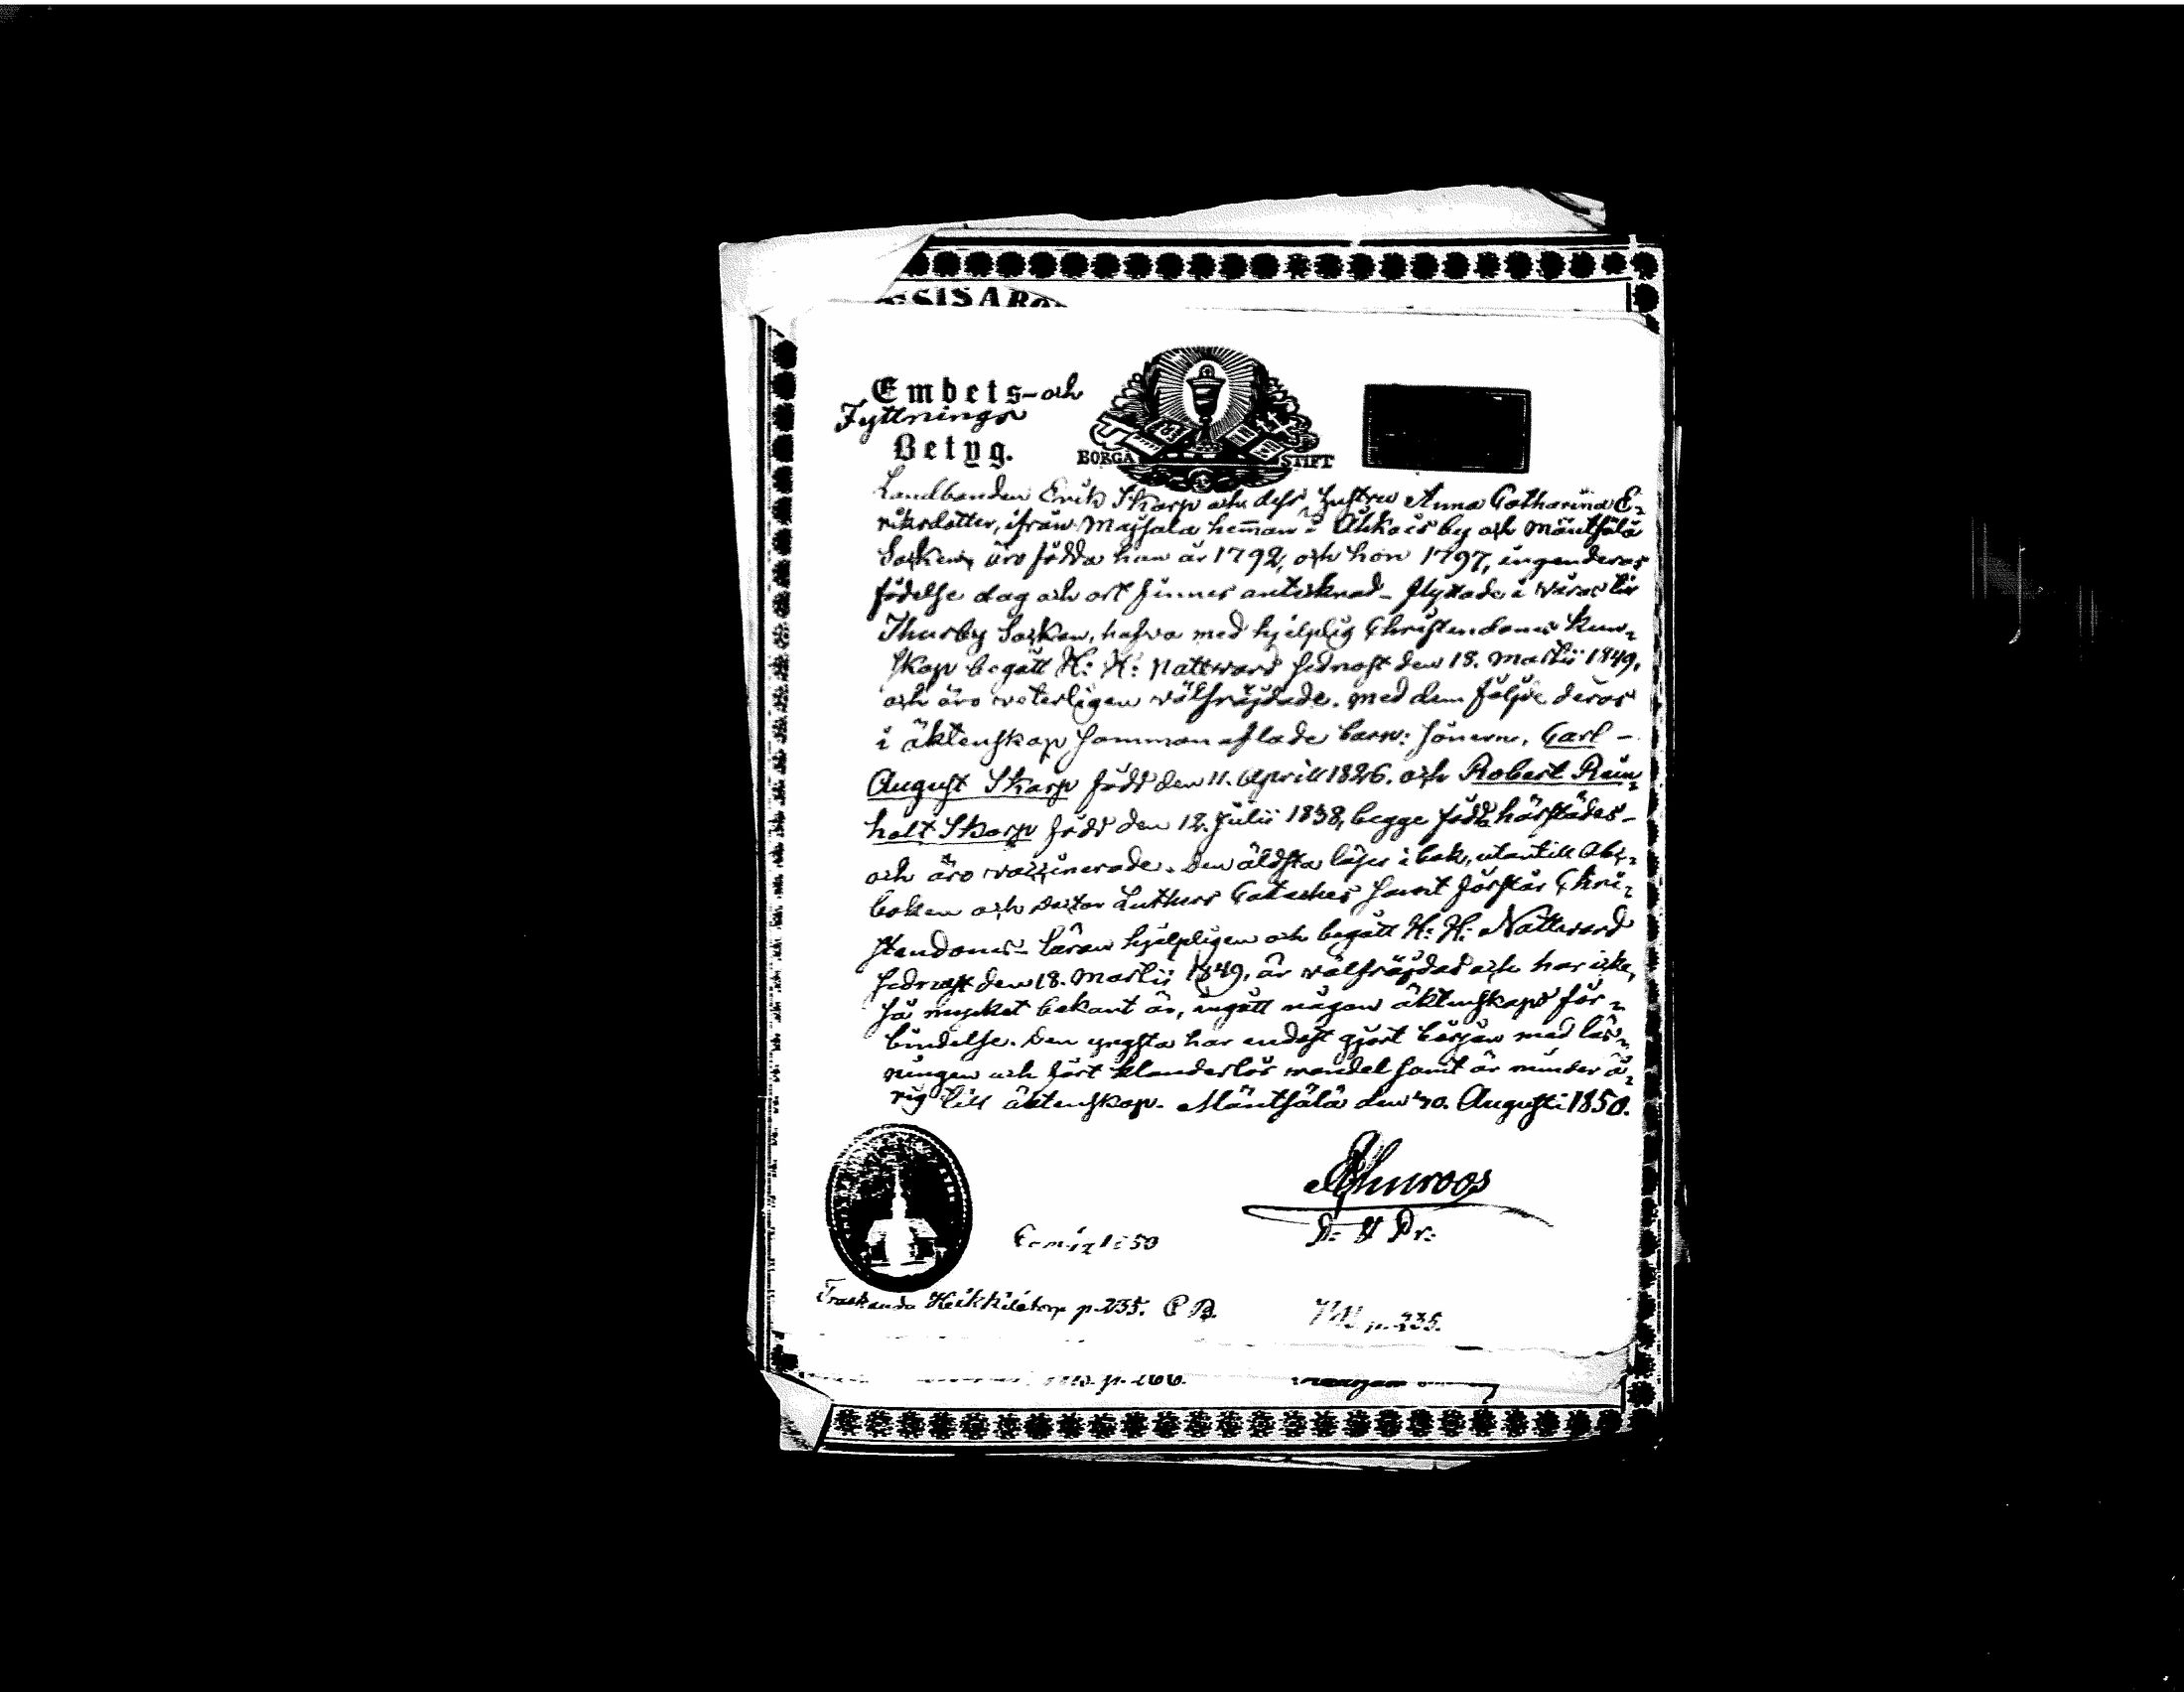 SISARO
Embets- och
Fyttnings
Betyg.
BORGÅ STIFT
Landbonden Erik Skarp och dess hustru Anna Catharina E-
riksdotter, ifrån Maijala heman i Ohkois by och Mäntsälä
Socken, äro födda han år 1792, och hon 1797, ingenderas
födelse dag och ort finnes antecknad - flyttade i våras till
Thusby Socken, hafva med hjelplig Christendoms kun-
skap begått H: H: Nattward sednast den 18. Martii 1849,
och äro veterligen välfräjdade. Med dem följde deras
i äktenskap sammanaflade barn: Sönerne, Carl -
August Skarp född den 11. Aprill 1826. och Robert Rein-
holt Skarp född den 12. Julii 1838, begge födde härstädes -
och äro vaccinerade. Den äldsta läser i bok, utantill Abc-
boken och Doctor Luthers Cateches samt förstår Chri-
stendoms- läran hjelpligen och begått H: H: Nattward
sednast den 18. Martii 1849, är välfräjdad och har icke,
så mycket bekant är, ingått någon äktenskaps för-
bindelse. Den yngsta har endast gjort början med läs-
ningen och fört klanderlös vandel samt är minder å-
rig till äktenskap. Mäntsälä den Augusti 1850.
D: V Pr:
50
Träskända Heikkilä torp p. 235. C B.
p. 235.
p. 266.